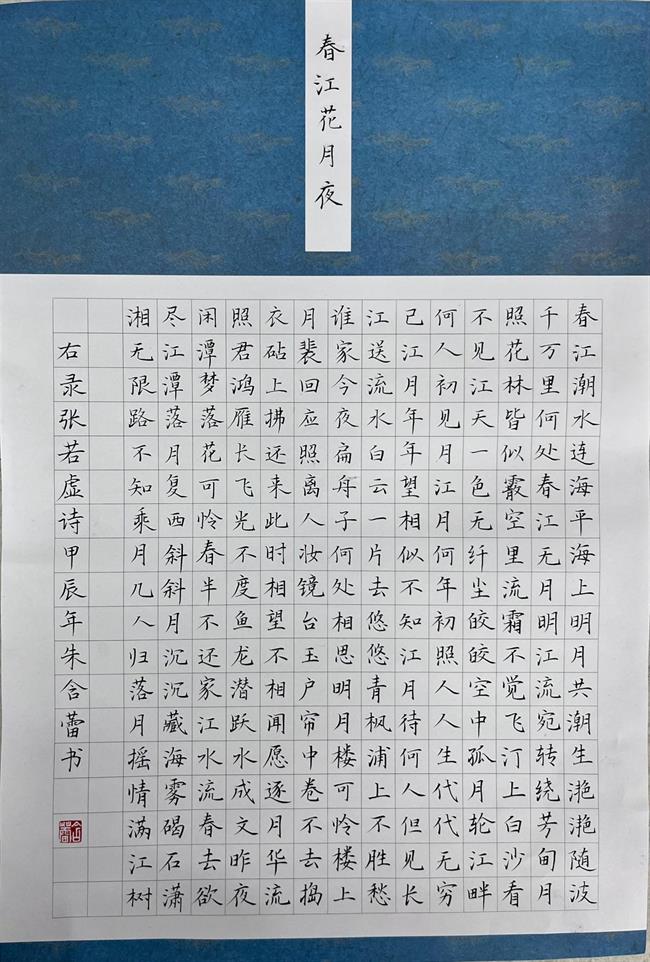 春江花月夜
春江潮水连海平海上明月共潮生滟滟随波
千万里何处春江无月明江流宛转绕芳甸月
照花林皆似霰空里流霜不觉飞汀上白沙看
不见江天一色无纤尘皎皎空中孤月轮江畔
何人初见月江月何年初照人人生代代无穷
已江月年年望相似不知江月待何人但见长
江送流水白云一片去悠悠青枫浦上不胜愁
谁家今夜扁舟子何处相思明月楼可怜楼上
月裴回应照离人妆镜台玉户帘中卷不去捣
衣砧上拂还来此时相望不相闻愿逐月华流
照君鸿雁长飞光不度鱼龙潜跃水成文昨夜
闲潭梦落花可怜春半不还家江水流春去欲
尽江潭落月复西斜斜月沉沉藏海雾碣石潇
湘无限路不知乘月几人归落月摇情满江树
右录张若虚诗甲辰年朱含蕾书
含蕾